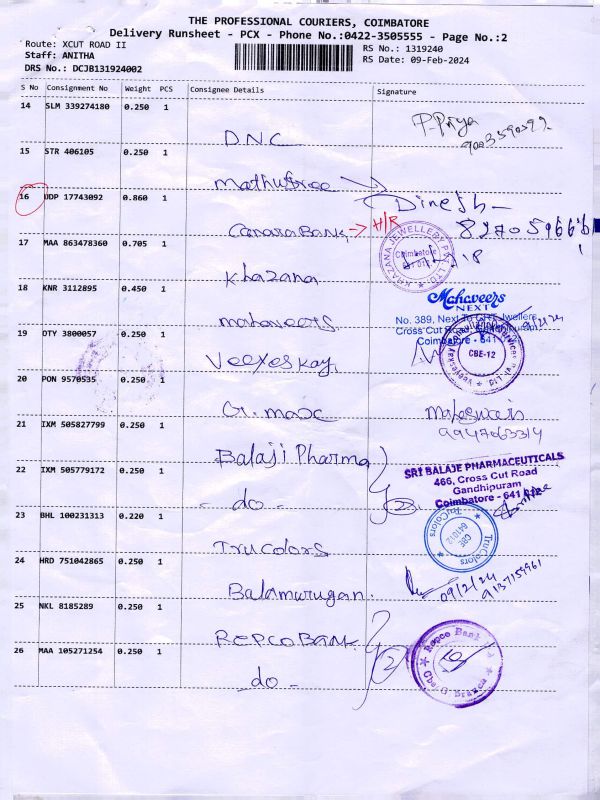 THE PROFESSIONAL COURIERS, COIMBATORE
Delivery Runsheet - PCX - Phone No.:0422-3505555 - Page No.:2
Route: XCUT ROAD II
RS No.: 1319240
Staff: ANITHA
RS Date: 09-Feb-2024
DRS No.: DCJB131924002
S No Consignment No Weight PCS Consignee Details Signature
14 SLM 339274180 0.250 1
P.Priya
DNC
15 STR 406105 0.250 1
Mathusree
16 UDP 17743092 0.860 1
Dinesh
Canara Bank → H/R
17 MAA 863478360 0.705 1
KHAZANA JEWELLERY PVT. LTD.
Coimbatore
Khazana
18 KNR 3112895 0.450 1
Mahaveers
NEXT
No. 389, Next To GRT Jwellers
Cross Cut Road, Gandhipuram
Coimbatore - 641 012
mahaveers
19 OTY 3800057 0.250 1
CBE-12
Veeyeskay
20 PON 9570535 0.250 1
Maheswari
G.max
9947063314
21 IXM 505827799 0.250 1
Balaji Pharma
SRI BALAJE PHARMACEUTICALS
466, Cross Cut Road
Gandhipuram
Coimbatore - 641 012
22 IXM 505779172 0.250 1
- do - 2
23 BHL 100231313 0.220 1
TruColors
CBE
641012
TruColors
TruColors
24 HRD 751042865 0.250 1
09/2/24
9137159961
Balamurugan
25 NKL 8185289 0.250 1
REPCO BANK
Repco Bank
26 MAA 105271254 0.250 1
2
Cbe.G.Branch
- do -